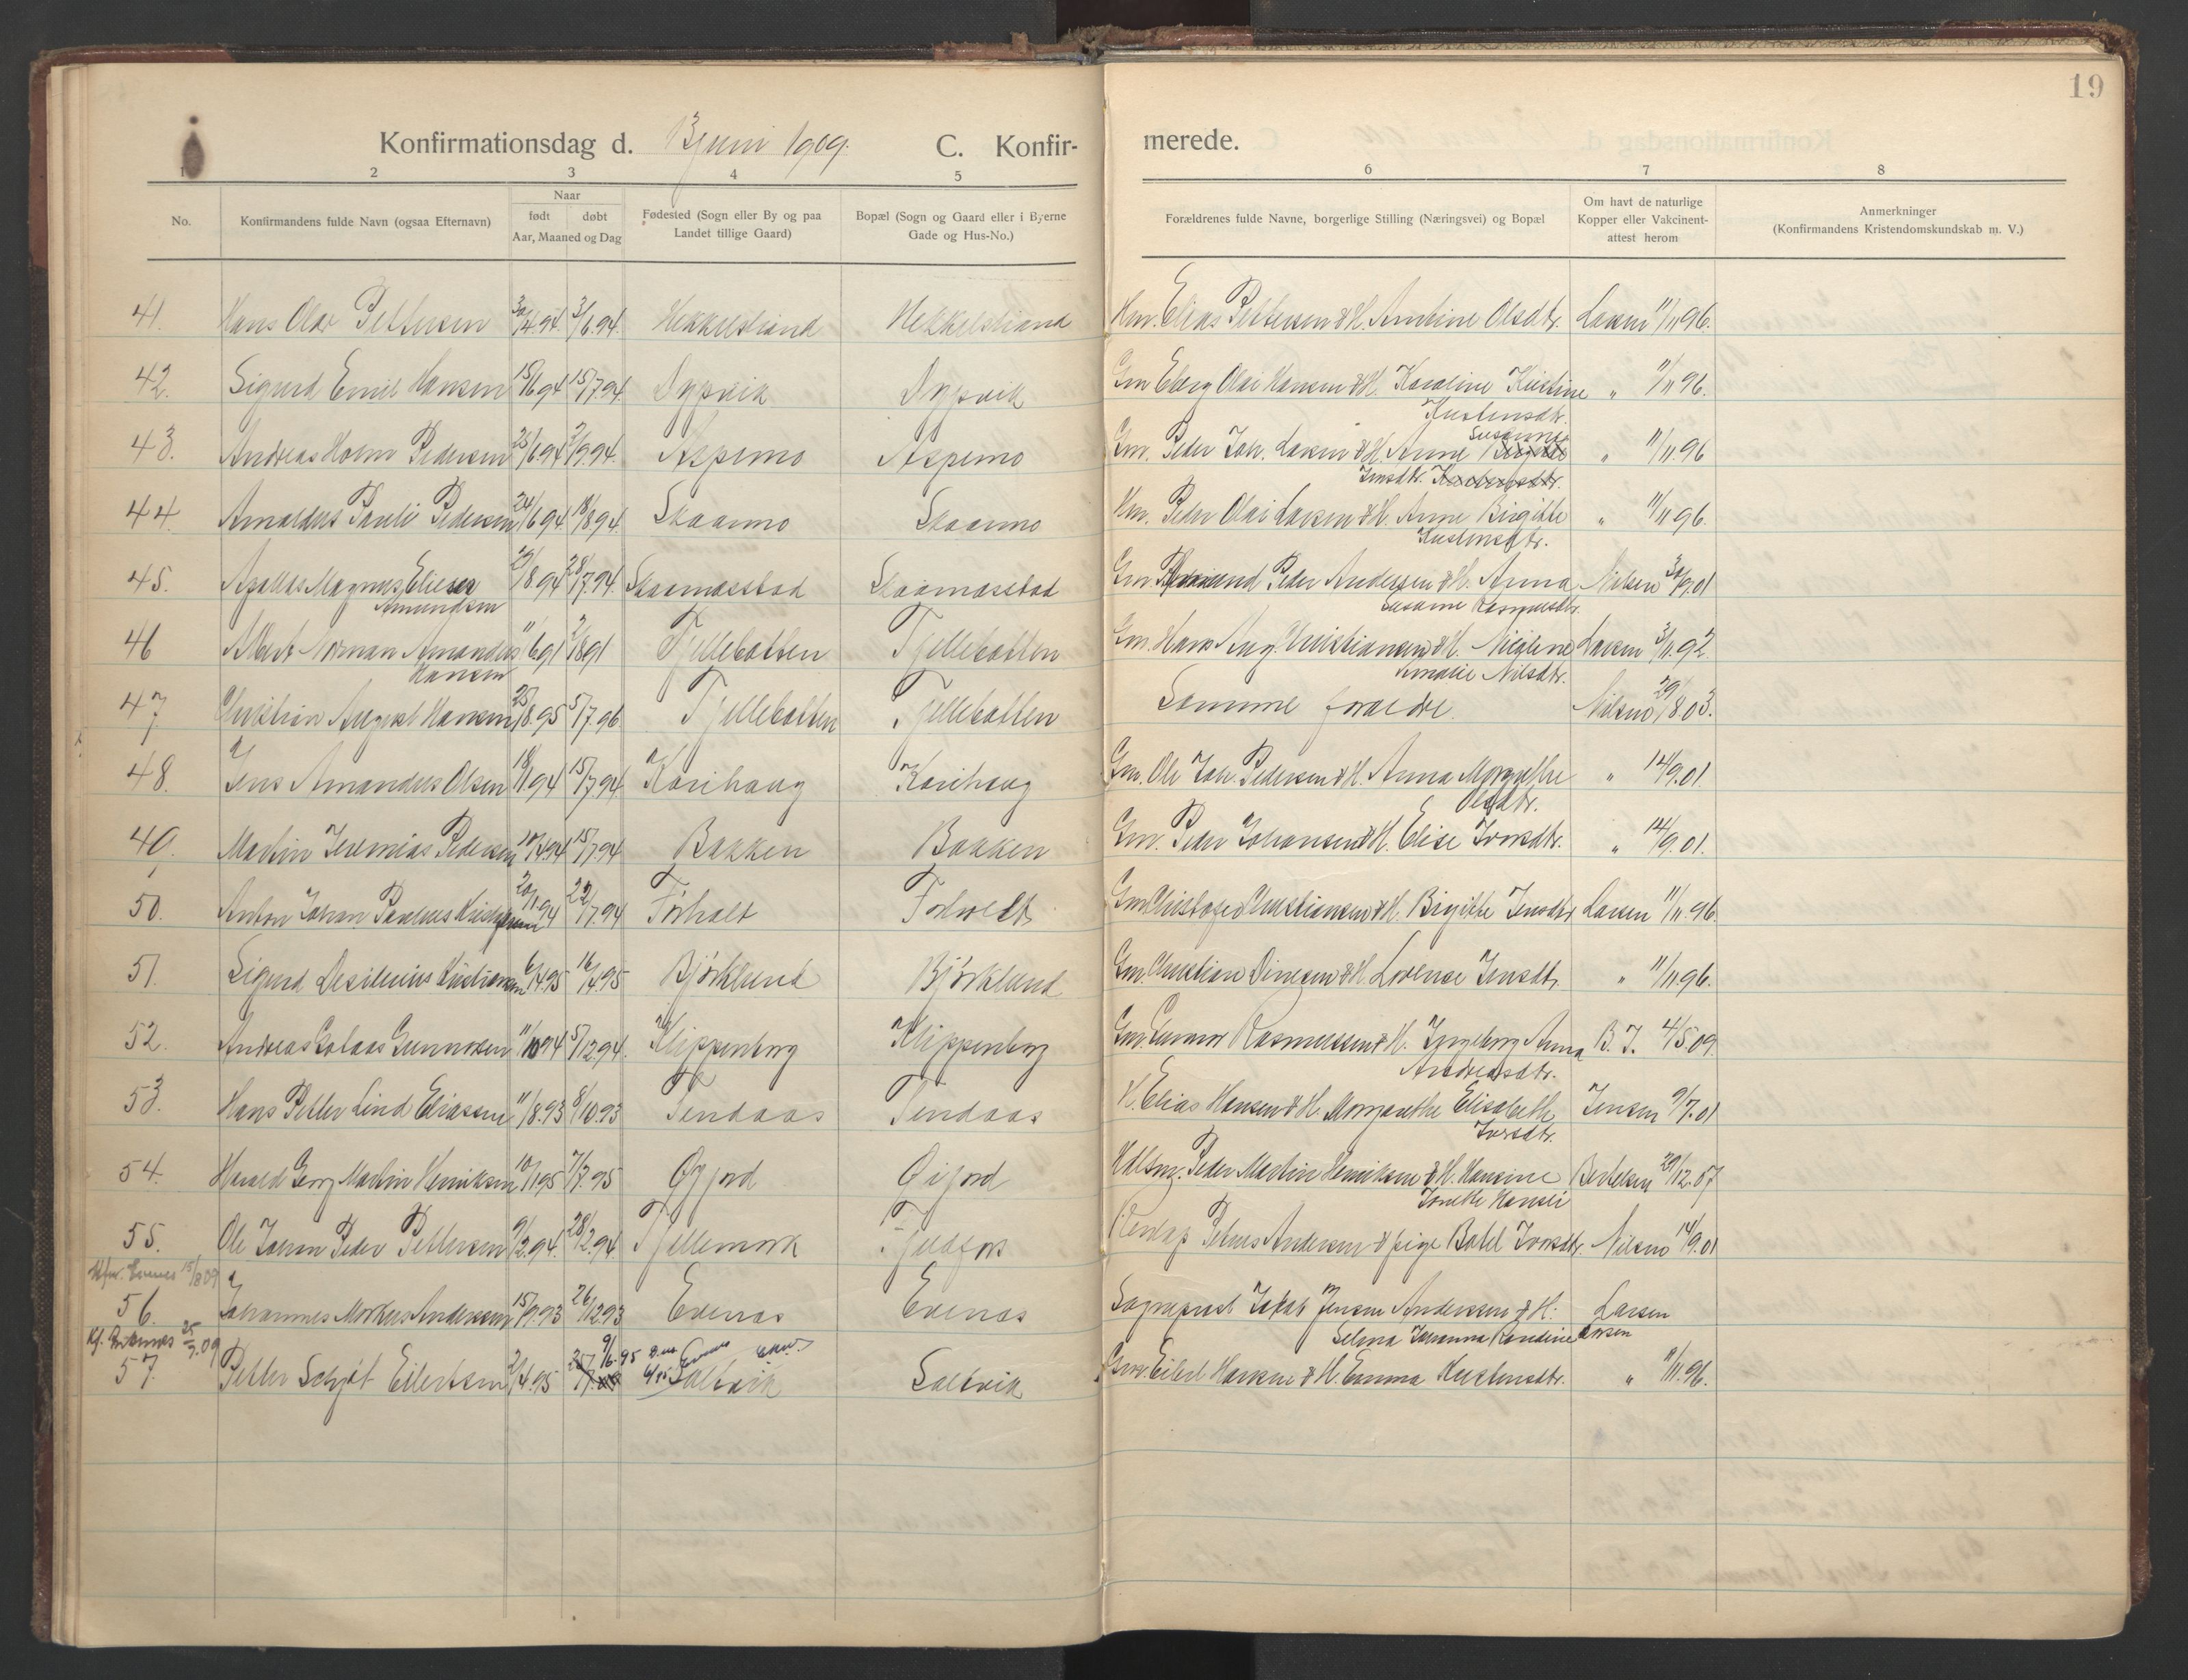 19
Konfirmationsdag d. 13 juni 1909. C. Konfir- merede.
1 2 3 4 5 6 7 8
No.
Konfirmandens fulde Navn (ogsaa Efternavn)
Naar
født døbt
Aar, Maaned og Dag
Fødested (Sogn eller By og paa
Landet tillige Gaard)
Bopæl (Sogn og Gaard eller i Byerne
Gade og Hus-No.)
Forældrenes fulde Navne, borgerlige Stilling (Næringsvei) og Bopæl
Om havt de naturlige
Kopper eller Vakcinent-
attest herom
Anmerkninger
(Konfirmandens Kristendomskundskab m. V.)
41. Hans Olav Pettersen 30/4 94. 3/6.94. Hekkelstrand Hekkelstrand Hm. Elias Pettersen & H. Antine Olsdtr. Larsen 11/11 96.
42. Sigurd Emil Hansen 15/6 94 15/7 94. Dypvik Dypvik Gm Eberg Olai Hansen & H. Karoline Kristine " 11/11 96.
Kristensdtr.
43. Andreas Holm Pedersen 25/6 94 2/9.94. Aspemo Aspemo Gm. Peder Joh. Larsen & H. Anne Birgitte " 11/11.96
Susanna
Jensdtr. Kristensdtr.
44. Arnoldus Pauli Pedersen 24/6 94 18/8 94. Skaanmo Skaanmo Hm. Peder Olai Larsen & H. Anne Birgitte " 11/11 96.
Kristensdtr.
45. Apollus Magnus Elieser 8 94 28/7.94. Skaamasstad Skaamasstad Gm Peder Andersen & H. Anna Nilsen 30/9.01
Amundsen Susanne Rasmusdtr.
46 Albert Norman Amandus 11/6 91 2/8 91 Tjellebotten Tjellebotten Gm. Hans Aug. Christiansen & H. Nicoline Larsen 3/11.92
Hansen Amalie Nilsdtr.
47 Christian August Hansen 25/8.95 5/7.96 Tjellebotten Tjellebotten Samme forældre. Nilsen 29/8.03.
48. Jens Amandus Olsen 18/1 94 15/7 94 Karihaug Karihaug Gm. Ole Joh. Pedersen & H. Anna Morgrethe " 14/9.01
Olsdtr.
49. Martin Jeremias Pedersen 10/4 94 15/7 94 Bakken Bakken Gm. Peder Johansen & H. Elise Iversdtr. " 14/9.01.
50. Anton Johan Paulus Kristoffersen 20/1 94 22/7.94 Forholt Gm Christofer Christiansen & H. Birgitte Jensdtr Larsen 11/11.96.
51. Sigurd Desiderius Kristiansen 6/4 95 16/4.95 Björklund Björklund Gm. Christian Dinesen & H. Lorense Jensdtr. " 11/11.96.
52. Andreas Golaas Gunnarsen 11/10 94 5/12 94. Klippenborg Klippenborg Gm. Gunnar Rasmussen & H. Ingeborg Anna B. J. 4/5 09
Andreasdtr.
53. Hans Petter Lind Eliassen 11/8.93 8/10.93 Tendaas Tendaas H. Elias Hansen & H. Morganthe Elisabeth Jensen 9/7.01
Iversdtr.
54. Harald Georg Martin Henriksen 10/1 95 7/7.95 Øyjord Øijord Peder Martin Henriksen & H. Hansine Bertelsen 29/12.07
Jonette Hansli
55. Ole Johan Peder Pettersen 9/2.94. 28/2.94. Tjellemark Tjeldfors Petrus Andersen & pige Botel Iversdtr. Nilsen 14/9.01
Kfm. Evenes 15/8 09
56. Johannes Markus Anderssen 15/9.93 26/12 93 Evenas Evenas Sogneprest Jakob Jensen Anderssen & H. Larsen
Selma Johanna Randine Larsen
25/7.09
57. Petter Schjöt Eilertsen 2/4.95 9/6.95 Saltvik Saltvik Gm. Eilert Hansen & H. Emma Kristensdtr. " 11/11.96.